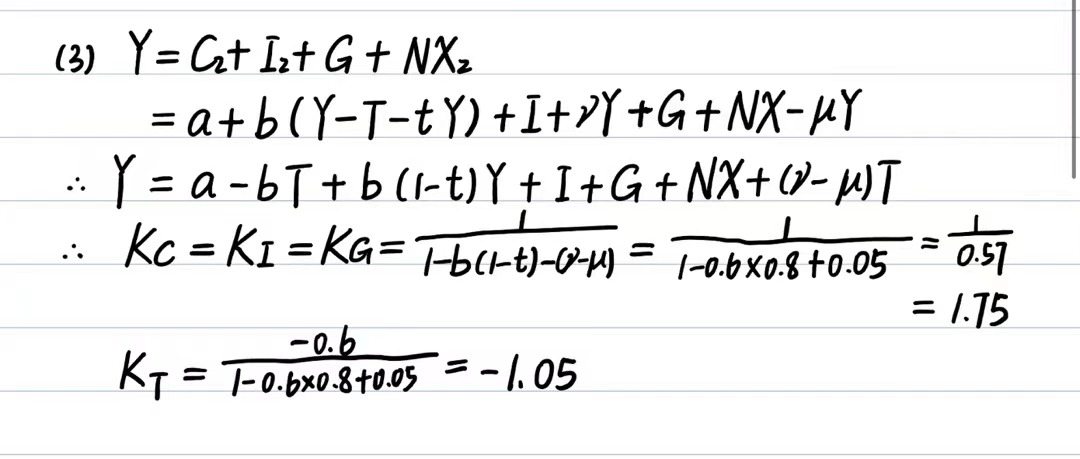 (3) Y = C₂ + I₂ + G + NX₂
= a + b(Y-T-tY) + I + νY + G + NX - μY
∴ Y = a - bT + b(1-t)Y + I + G + NX + (ν-μ)T
∴ Kc = K_I = K_G = 1/(1-b(1-t)-(ν-μ)) = 1/(1-0.6×0.8+0.05) = 1/0.57
= 1.75
K_T = -0.6/(1-0.6×0.8+0.05) = -1.05